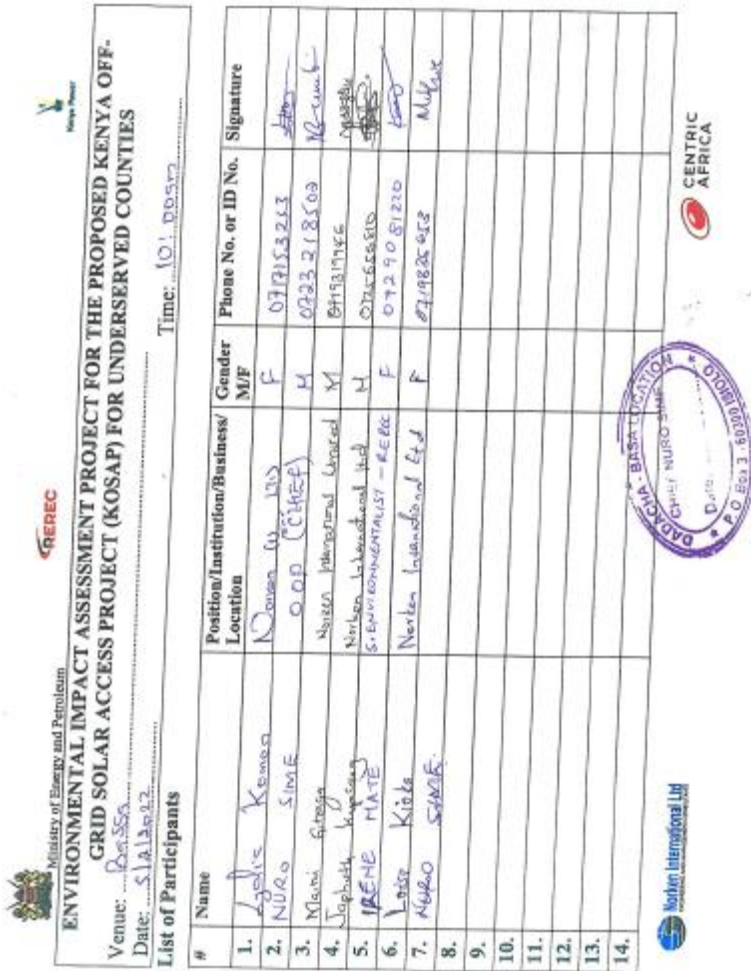 Ministry of Energy and Petroleum
REREC
Kenya Power
ENVIRONMENTAL IMPACT ASSESSMENT PROJECT FOR THE PROPOSED KENYA OFF-
GRID SOLAR ACCESS PROJECT (KOSAP) FOR UNDERSERVED COUNTIES
Venue: Bassa
Date: 5/2/2022 Time: 10:00am
List of Participants
# Name Position/Institution/Business/Location Gender M/F Phone No. or ID No. Signature
1. Lydia Komen F 0717153263
2. NURO SIME OOP (CHIEF) M 0723218502
3. Maini Norken International Limited M
4. Japheth Norken International Ltd M
5. IRENE MATE S. ENVIRONMENTALIST - REREC F 0729081220
6. Kioko Norken International Ltd F
7. NURO SIME
8.
9.
10.
11.
12.
13.
14.
DADACHA - BASA LOCATION
CHIEF NURO SIME
Date:
P.O. Box 3 - 60300 ISIOLO
Norken International Ltd
CENTRIC
AFRICA